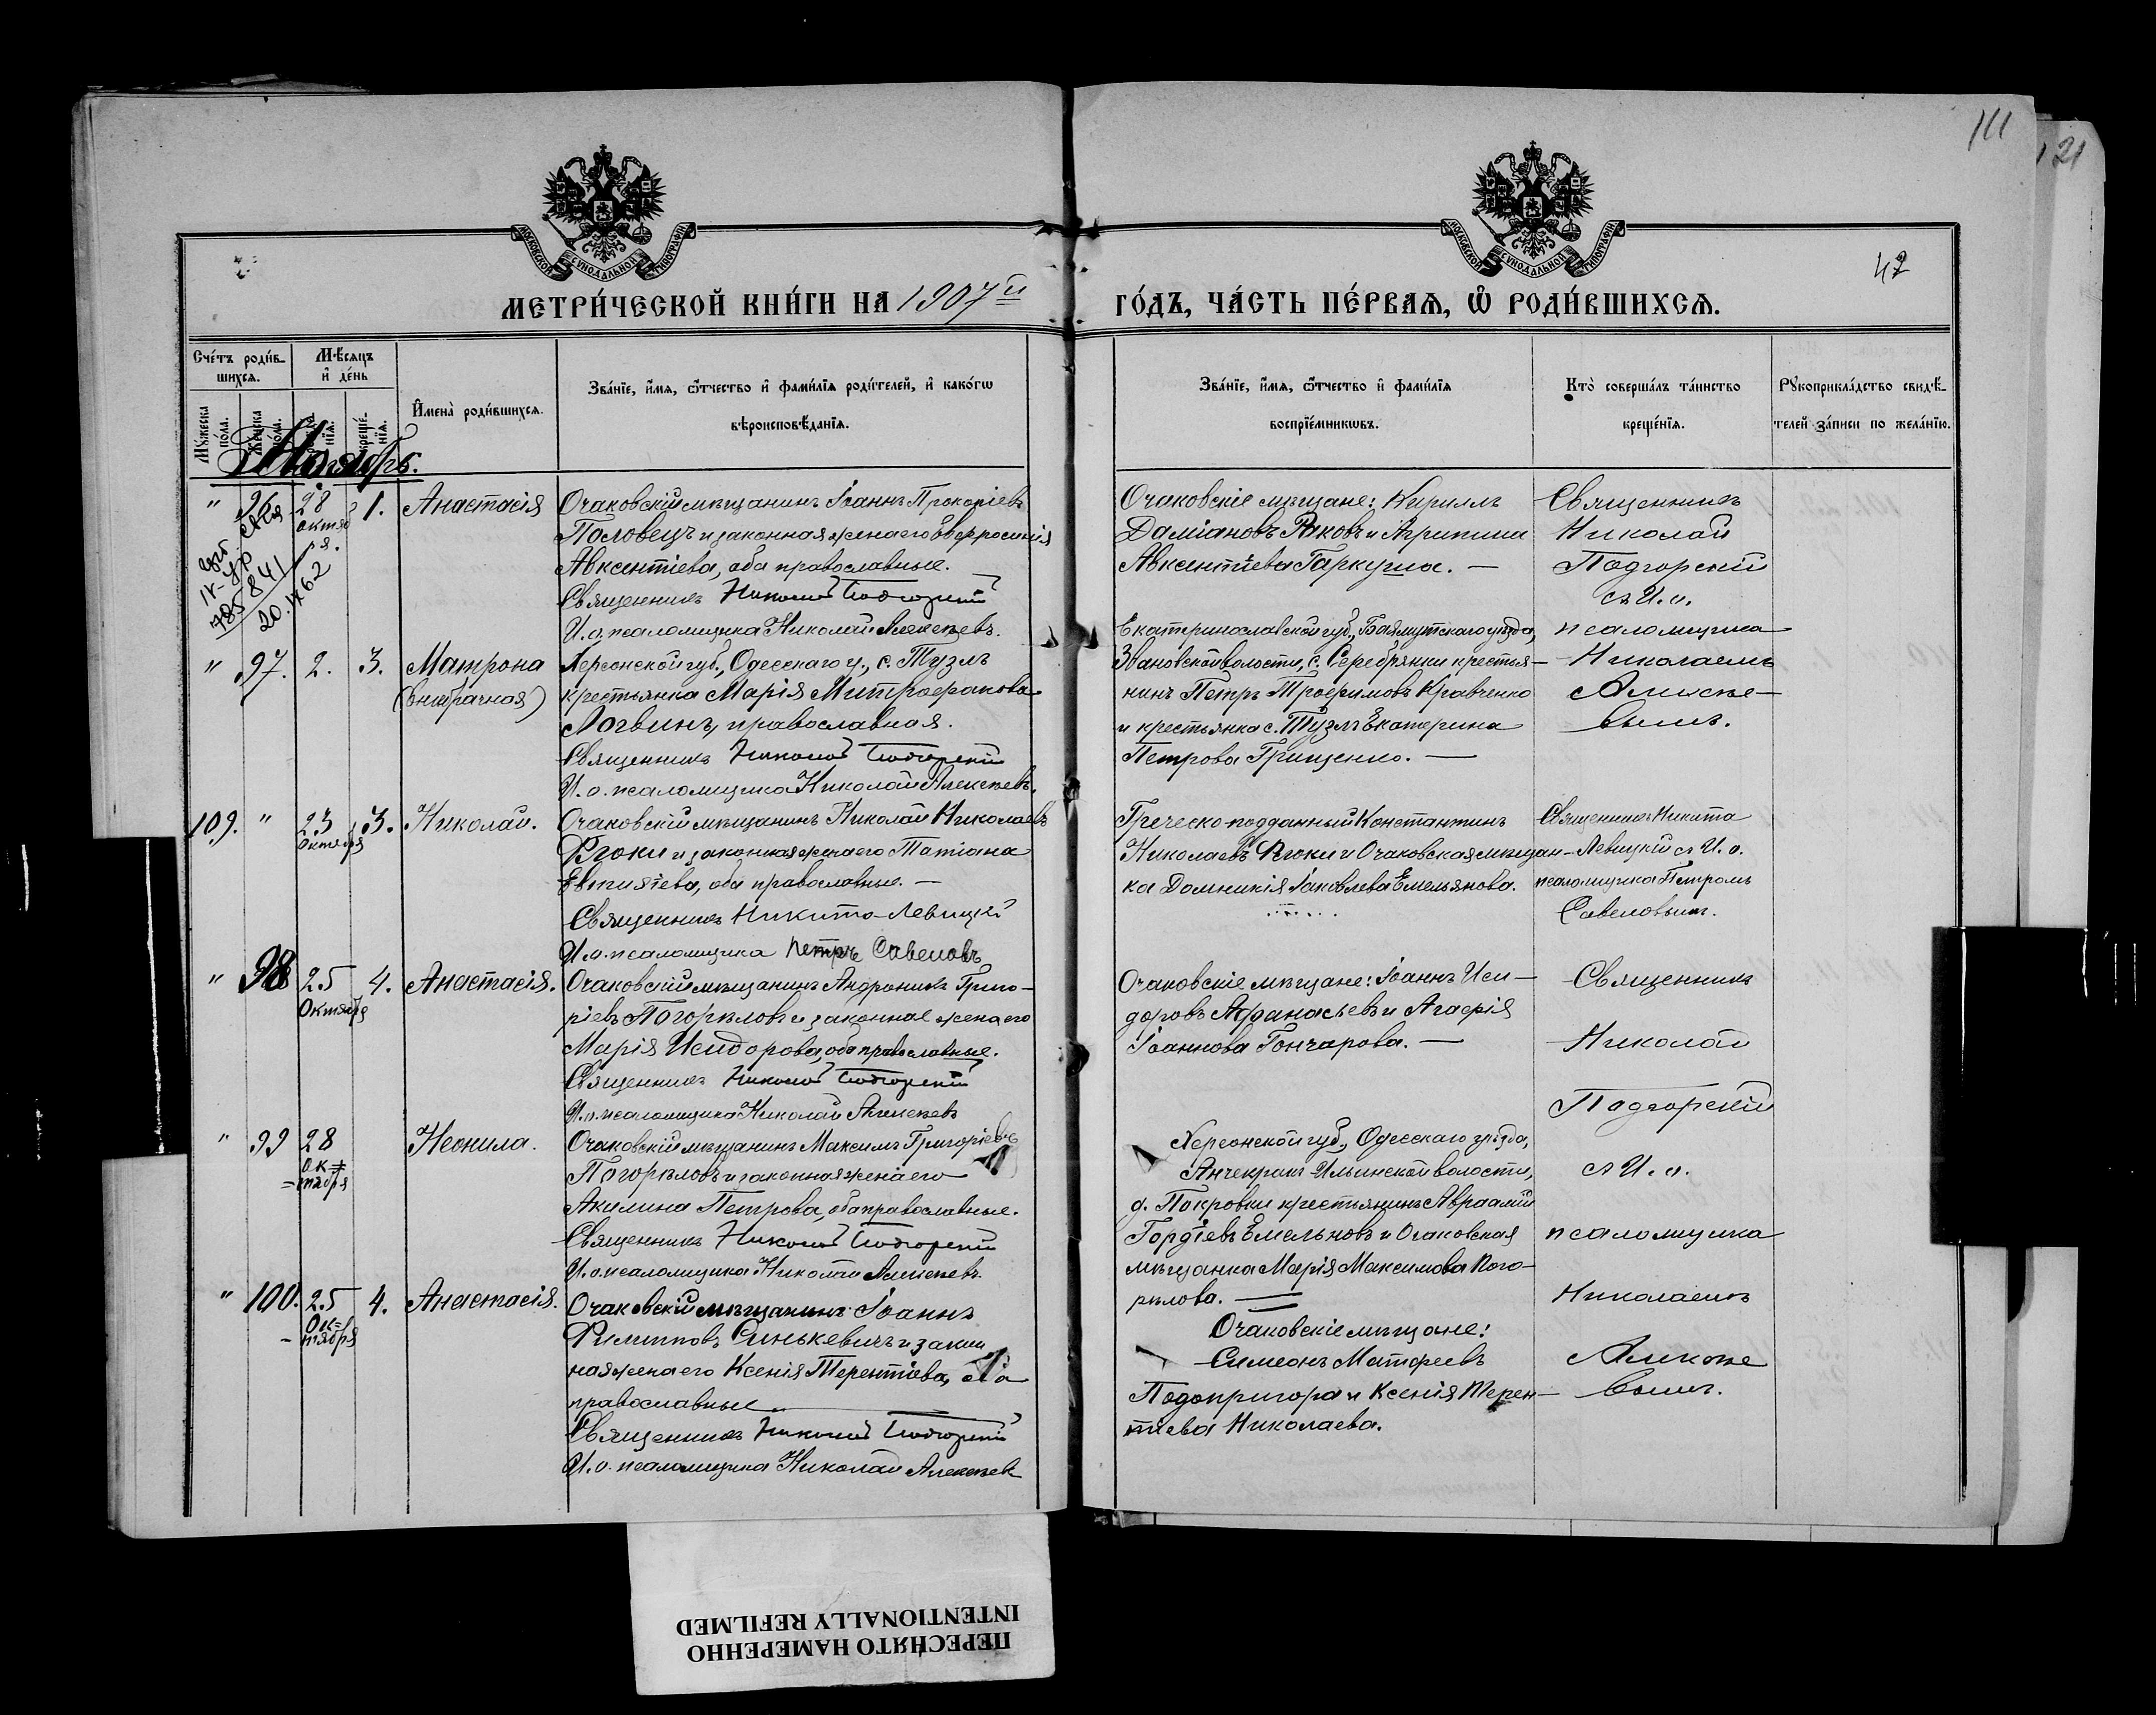 111
121
42
МОСКОВСКОЙ СѴНОДАЛЬНОЙ ТИПОГРАФІИ
МОСКОВСКОЙ СѴНОДАЛЬНОЙ ТИПОГРАФІИ
МЕТРИ́ЧЕСКОЙ КНИ́ГИ НА 1907й
ГО́ДЪ, ЧА́СТЬ ПЕ́РВАѦ, Ѡ҆ РОДИ́ВШИХСѦ.
Сче́тъ роди́в-
шихсѧ.
Мѣ́сѧцъ
и҆ де́нь
Мꙋ́жеска
по́ла.
Же́нска
по́ла.
креще́-
нїѧ.
И҆мена̀ роди́вшихсѧ.
Зва́нїе, и҆́мѧ, ѻ҆́тчество и҆ фами́лїѧ роди́телей, и҆ како́гѡ
вѣроисповѣ́данїѧ.
Зва́нїе, и҆́мѧ, ѻ҆́тчество и҆ фами́лїѧ
воспрїе́мникѡвъ.
Кто̀ соверша́лъ та́инство
креще́нїѧ.
Рꙋкоприкла́дство свидѣ́-
телей за́писи по жела́нїю.
Ноябрь.
" 96. 28 октября. 1. Анастасія
Очаковскій мѣщанинъ Іоаннъ Прокопіевъ
Половецъ и законная жена его Евфросинія
Авксентіева, оба православные.
Священникъ Николай Подгорскій
И.о. псаломщика Николай Алексѣевъ.
Очаковскіе мѣщане: Кириллъ
Даміановъ Раковъ и Агрипина
Авксентіева Гаркуша. —
Священникъ
Николай
Подгорскій
съ И.о.
псаломщика
Николаемъ
Алексѣе-
вымъ.
" 97. 2. 3. Матрона
(внебрачная)
Херсонской губ., Одесскаго у., с. Тузлъ
крестьянка Марія Митрофанова
Логвинъ, православная.
Священникъ Николай Подгорскій
И.о. псаломщика Николай Алексѣевъ.
Екатеринославской губ., Бахмутскаго уѣзда,
Звановской волости, с. Серебрянки крестья-
нинъ Петръ Трофимовъ Кравченко
и крестьянка с. Тузлъ Екатерина
Петрова Грищенко. —
109. " 23 октября 3. Николай.
Очаковскій мѣщанинъ Николай Николаевъ
и законная жена его Татіана
Евтихіева, оба православные. —
Священникъ Никита Левицкій
И.о. псаломщика Петръ Савеловъ
Греческо-подданный Константинъ
Николаевъ и Очаковская мѣщан-
ка Домникія Іаковлева Емельянова.
Священникъ Никита
Левицкій съ И.о.
псаломщика Петромъ
Савеловымъ.
" 98 25 Октября 4. Анастасія.
Очаковскій мѣщанинъ Андроникъ Григо-
ріевъ Погорѣловъ и законная жена его
Марія Исидорова, оба православные.
Священникъ Николай Подгорскій
И.о. псаломщика Николай Алексѣевъ
Очаковскіе мѣщане: Іоаннъ Иси-
доровъ Афанасьевъ и Агафія
Іоаннова Гончарова. —
Священникъ
Николай
Подгорскій
съ И.о.
псаломщика
Николаемъ
Алексѣе
вымъ.
" 99 28 ок=
=тября Неонила.
Очаковскій мѣщанинъ Максимъ Григоріевъ
Погорѣловъ и законная жена его
Акилина Петрова, оба православные.
Священникъ Николай Подгорскій
И.о. псаломщика Николай Алексѣевъ.
Херсонской губ., Одесскаго уѣзда,
Анчекрак-Ильинской волости,
д. Покровки крестьянинъ Авраамій
Гордіевъ Емельновъ и Очаковская
мѣщанка Марія Максимова Пого-
рѣлова. —
" 100. 25 Ок=
-тября 4. Анастасія.
Очаковскій мѣщанинъ Іоаннъ
Филипповъ Синькевичъ и закон
ная жена его Ксенія Терентіева, оба
православные
Священникъ Николай Подгорскій
И.о. псаломщика Николай Алексѣевъ
Очаковскіе мѣщане:
Симеонъ Матфеевъ
Подопригора и Ксенія Терен-
тіева Николаева.
ПЕРЕСНЯТО НАМЕРЕННО
INTENTIONALLY REFILMED